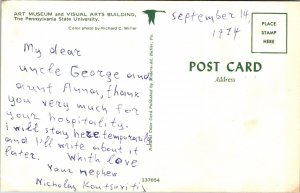 ART MUSEUM and VISUAL ARTS BUILDING,
The Pennsylvania State University.
Color photo by Richard C. Miller
September 14,
1974
PLACE
STAMP
HERE
My dear
uncle George and
aunt Anna, thank
you very much for
your hospitality.
I will stay here temporarly
and I'll write about it
later. Whith love
Your nephew
Nicholas
POST CARD
Address
137864